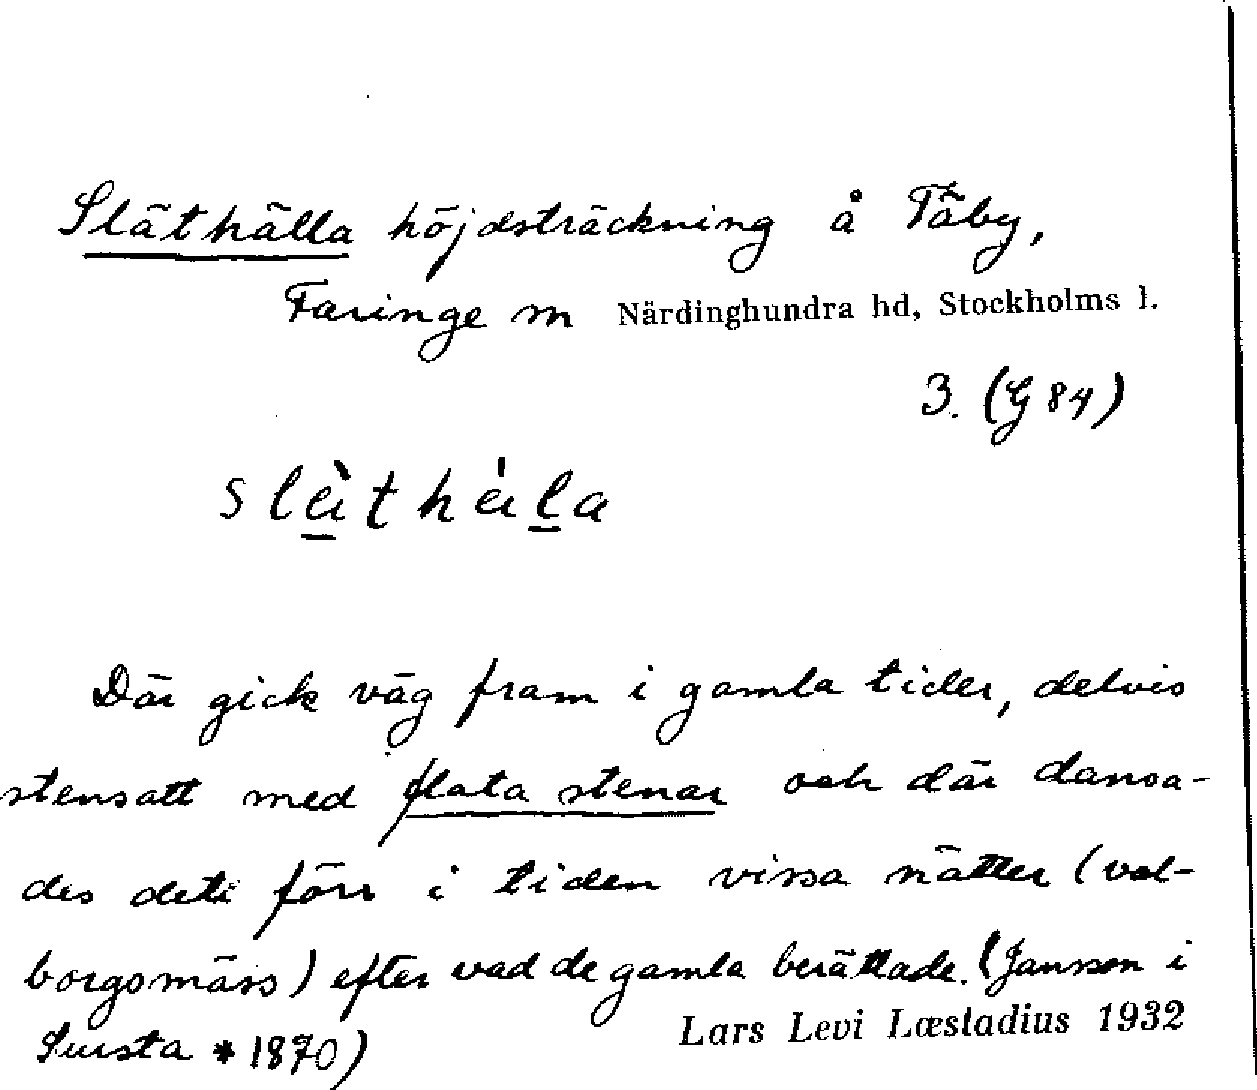 Släthälla höjdsträckning å Täby,
Faringe sn Närdinghundra hd, Stockholms l.
3. (G 84)
slä̀thä́la
Där gick väg fram i gamla tider, delvis
stensatt med flata stenar och där dansa-
des det förr i tiden vissa nätter (val-
borgsmäss) efter vad de gamla berättade. (Jansson i
Sursta * 1870)
Lars Levi Læstadius 1932